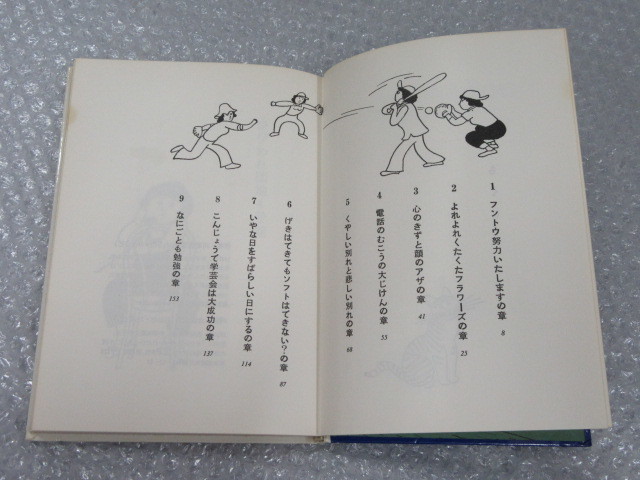 1 フントウ努力いたしますの章 8
2 よれよれくたくたフラワーズの章 23
3 心のきずと顔のアザの章 41
4 電話のむこうの大じけんの章 55
5 くやしい別れと悲しい別れの章 68
6 げきはできてもソフトはできない?の章 87
7 いやな日をすばらしい日にするの章 114
8 こんじょうで学芸会は大成功の章 137
9 なにごとも勉強の章 153